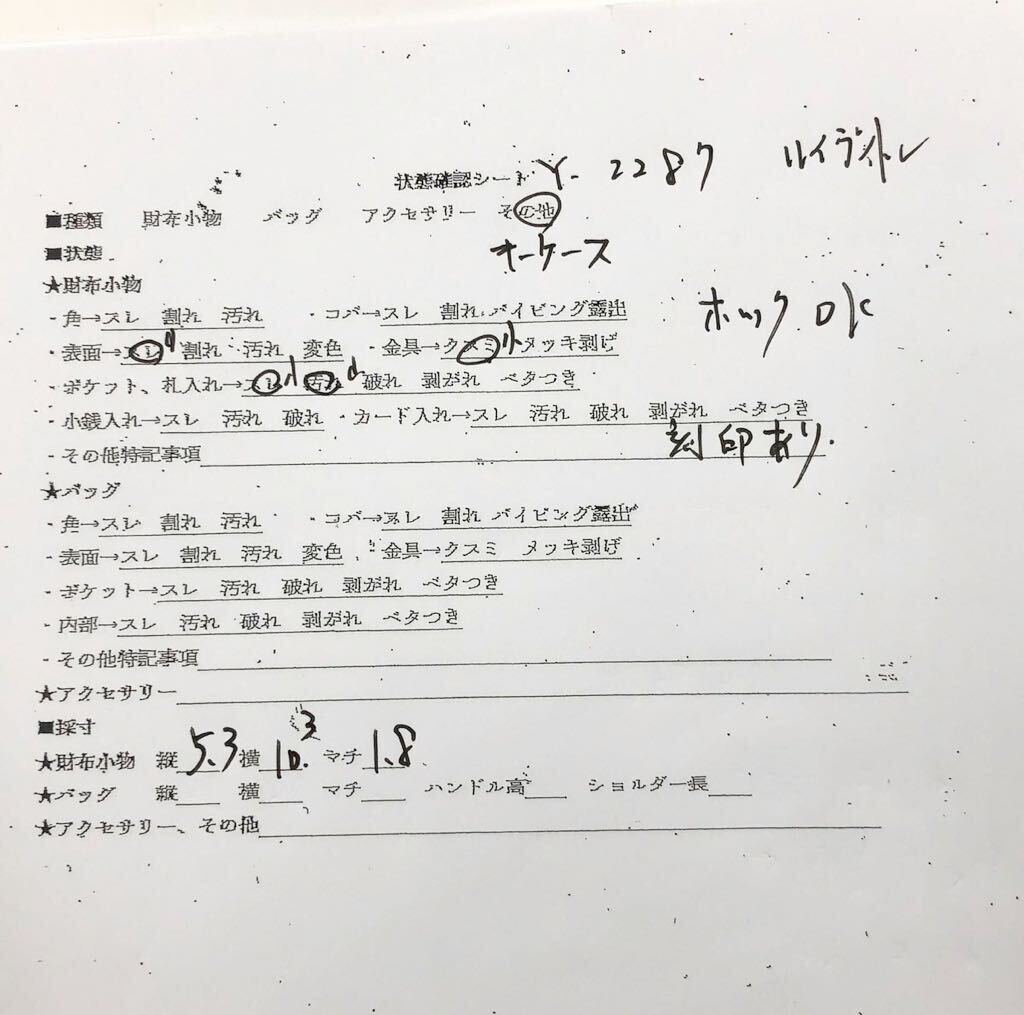 状態確認シート Y-2287 ルイヴィトン
■種類 財布小物 バッグ アクセサリー その他
■状態 キーケース
★財布小物
・角→スレ 割れ 汚れ ・コバ→スレ 割れ パイピング露出 ホック OK
・表面→スレ小 割れ 汚れ 変色 ・金具→クスミ小 メッキ剥げ
・ポケット、札入れ→スレ小 汚れ小 破れ 剥がれ ベタつき
・小銭入れ→スレ 汚れ 破れ ・カード入れ→スレ 汚れ 破れ 剥がれ ベタつき
・その他特記事項 刻印あり.
★バッグ
・角→スレ 割れ 汚れ ・コバ→スレ 割れ パイピング露出
・表面→スレ 割れ 汚れ 変色 ・金具→クスミ メッキ剥げ
・ポケット→スレ 汚れ 破れ 剥がれ ベタつき
・内部→スレ 汚れ 破れ 剥がれ ベタつき
・その他特記事項
★アクセサリー
■採寸
★財布小物 縦 5.3 横 10.3 マチ 1.8
★バッグ 縦 横 マチ ハンドル高 ショルダー長
★アクセサリー、その他